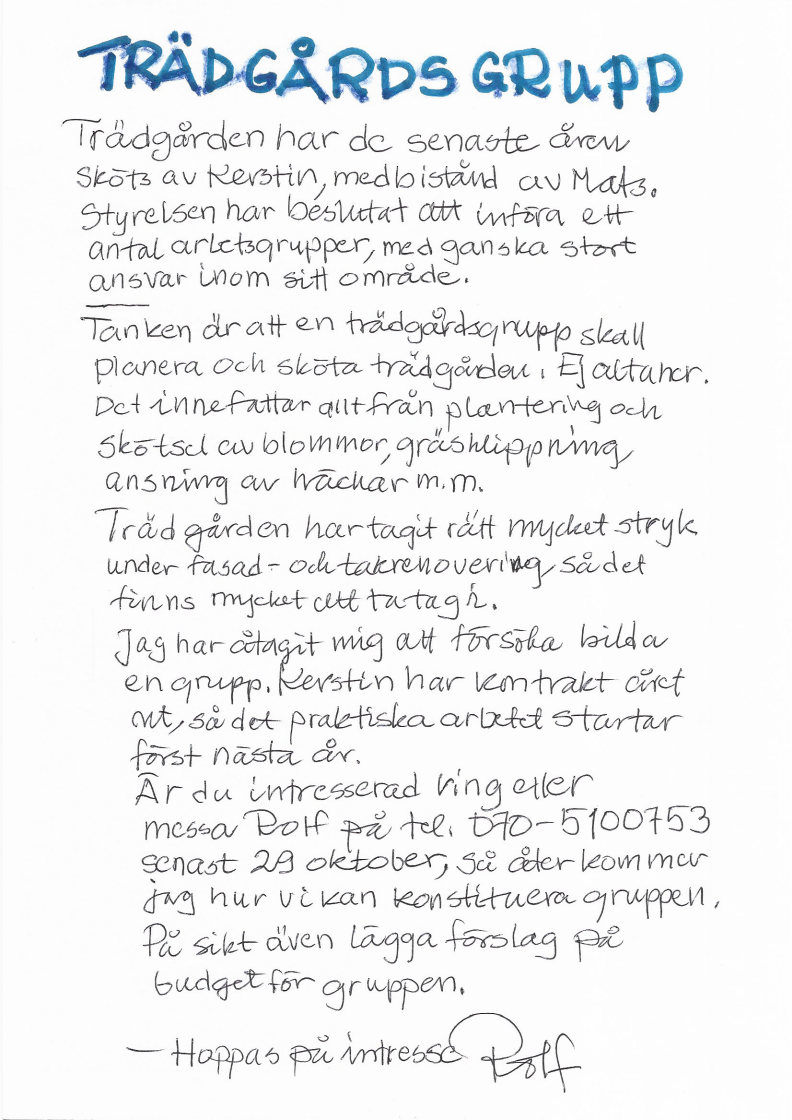 TRÄDGÅRDSGRUPP
Trädgården har de senaste åren
skötts av Kerstin, med bistånd av Mats.
Styrelsen har beslutat att införa ett
antal arbetsgrupper, med ganska stort
ansvar inom sitt område.
Tanken är att en trädgårdsgrupp skall
planera och sköta trädgården. Ej altaner.
Det innefattar allt från plantering och
skötsel av blommor, gräsklippning,
ansning av häckar m.m.
Trädgården har tagit rätt mycket stryk
under fasad- och takrenovering, så det
finns mycket att ta tag i.
Jag har åtagit mig att försöka bilda
en grupp. Kerstin har kontrakt året
ut, så det praktiska arbetet startar
först nästa år.
Är du intresserad ring eller
messa Rolf på tel. 070-5100753
senast 29 oktober, så återkommer
jag hur vi kan konstituera gruppen.
På sikt även lägga förslag på
budget för gruppen.
— Hoppas på intresse Rolf